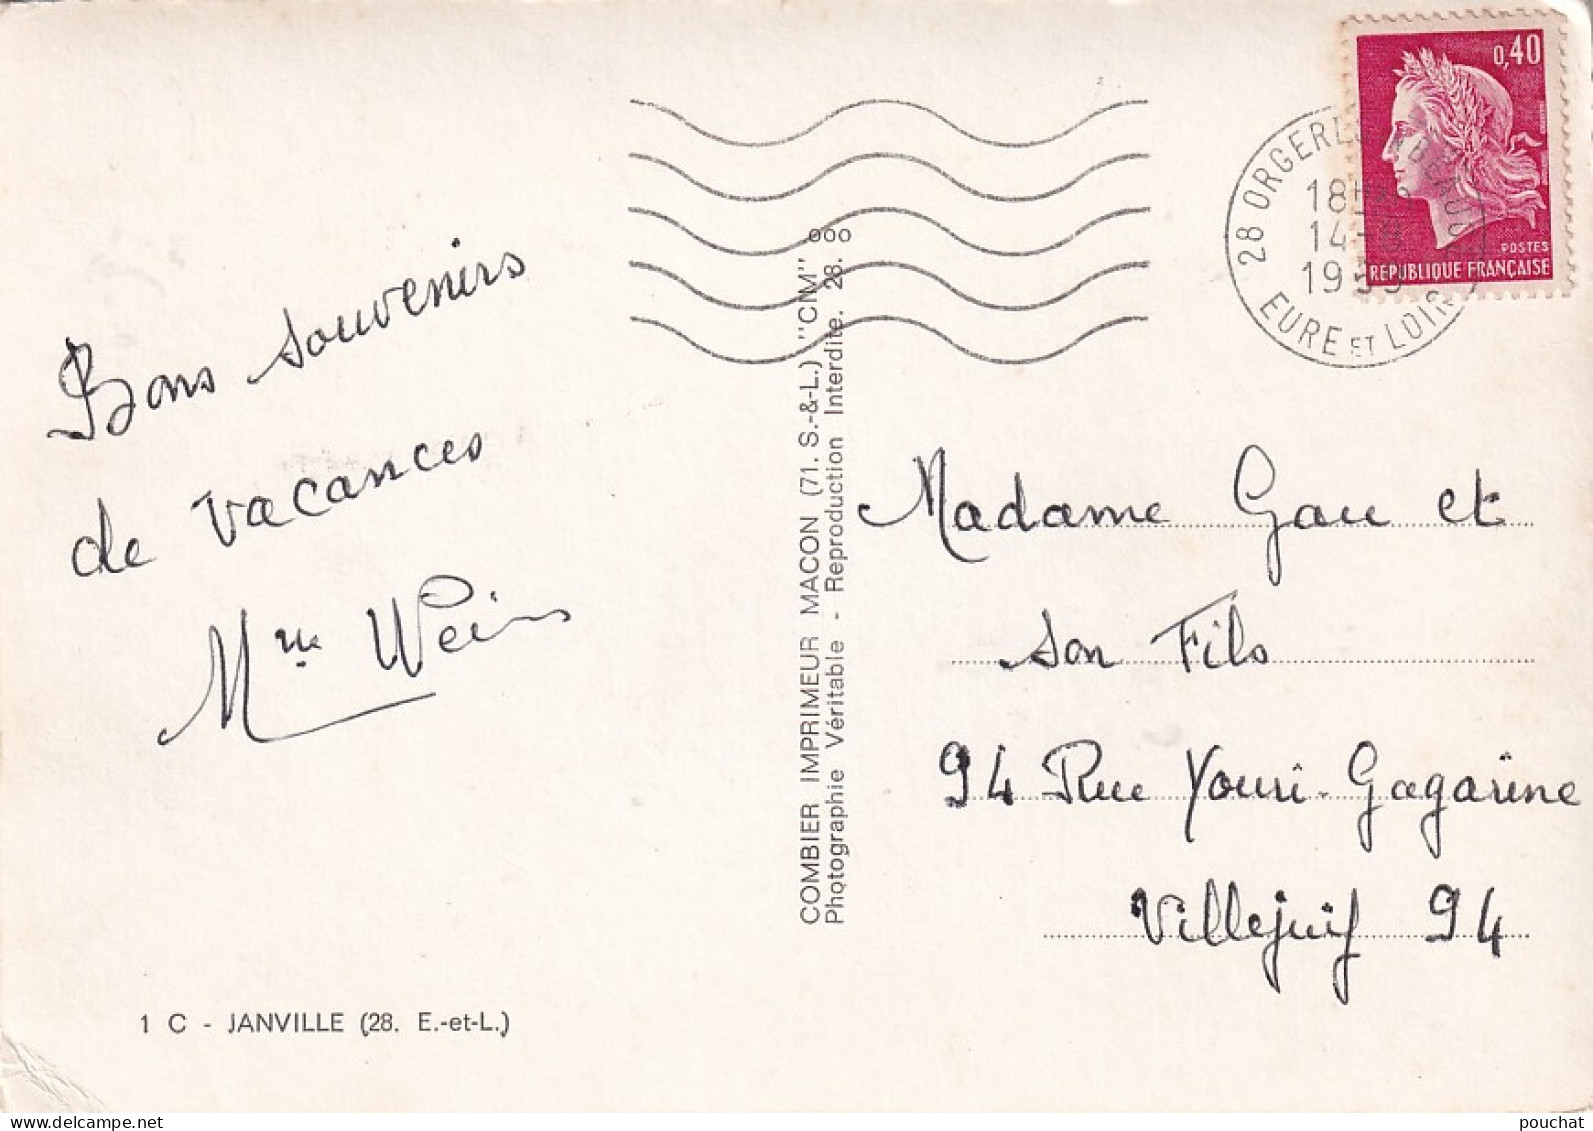 Bons souvenirs
de vacances
Mme Weins
1 C - JANVILLE (28. E.-et-L.)
COMBIER IMPRIMEUR MACON (71. S.-&-L.) "CIM"
Photographie Véritable - Reproduction Interdite. 28. ooo
0,40
POSTES
REPUBLIQUE FRANÇAISE
28 ORGERES EN BEAUCE
18H
14-8
19
EURE ET LOIR
Madame Gau et
son Fils
94 Rue Youri-Gagarine
Villejuif 94
pouchat